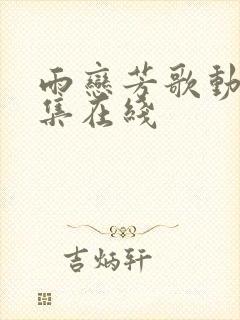 雨戀芳歌動
集在綫
吉炳軒